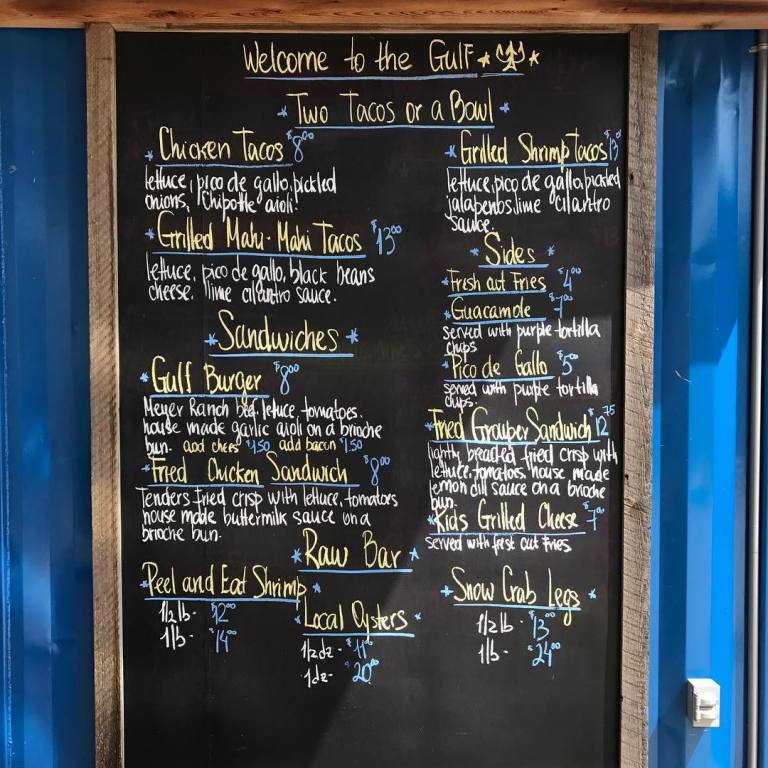 Welcome to the Gulf
Two Tacos or a Bowl
Chicken Tacos $8.00
lettuce, pico de gallo, pickled
onions, chipotle aioli.
Grilled Mahi-Mahi Tacos $13.00
lettuce, pico de gallo, black beans
cheese, lime cilantro sauce.
Grilled Shrimp Tacos $13
lettuce, pico de gallo, pickled
jalapenos, lime cilantro
sauce.
Sides
Fresh cut Fries $4.00
Guacamole $7.00
served with purple tortilla
chips
Pico de Gallo $5.00
served with purple tortilla
chips.
Sandwiches
Gulf Burger $8.00
Meyer Ranch beef, lettuce, tomatoes,
house made garlic aioli on a brioche
bun. add chees $1.50 add bacon $1.50
Fried Chicken Sandwich $8.00
Tenders fried crisp with lettuce, tomatoes
house made buttermilk sauce on a
brioche bun.
Fried Grouper Sandwich $12.75
lightly breaded fried crisp with
lettuce, tomatoes, house made
lemon dill sauce on a brioche
bun.
Kids Grilled Cheese $7.00
served with fresh cut fries
Raw Bar
Peel and Eat Shrimp
1/2 lb - $12.00
1 lb - $14.00
Local Oysters
1/2 dz - $11.00
1 dz - $20.00
Snow Crab legs
1/2 lb - $13.00
1lb - $24.00